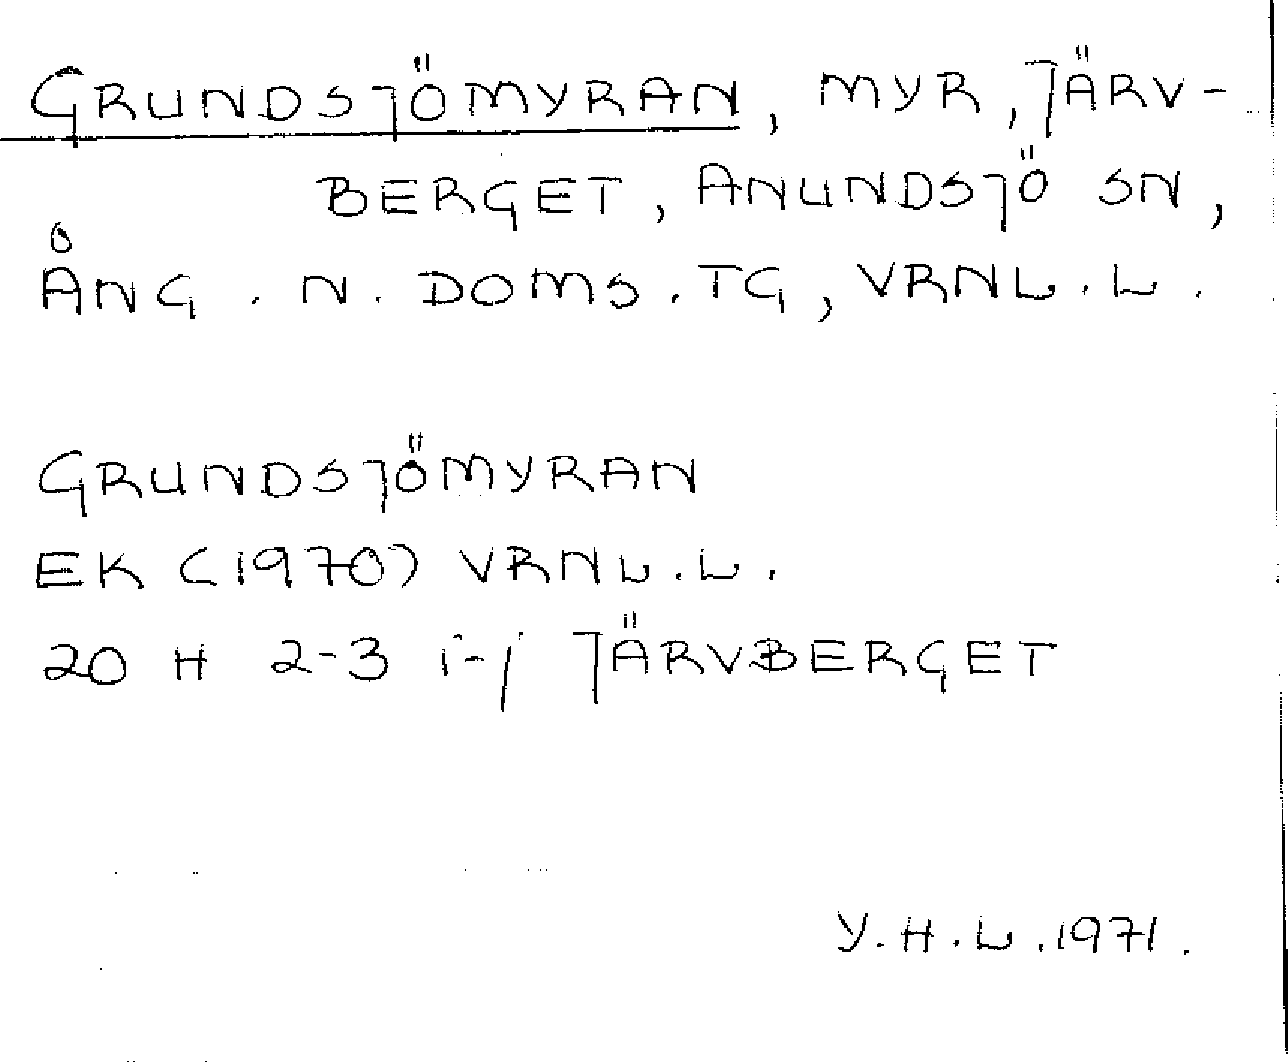 GRUNDSJÖMYRAN, MYR, JÄRV-
BERGET, ANUNDSJÖ SN,
ÅNG. N. DOMS. TG, VRNL.L.
GRUNDSJÖMYRAN
EK (1970) VRNL.L.
20 H 2-3 i-j JÄRVBERGET
Y.H.L.1971.